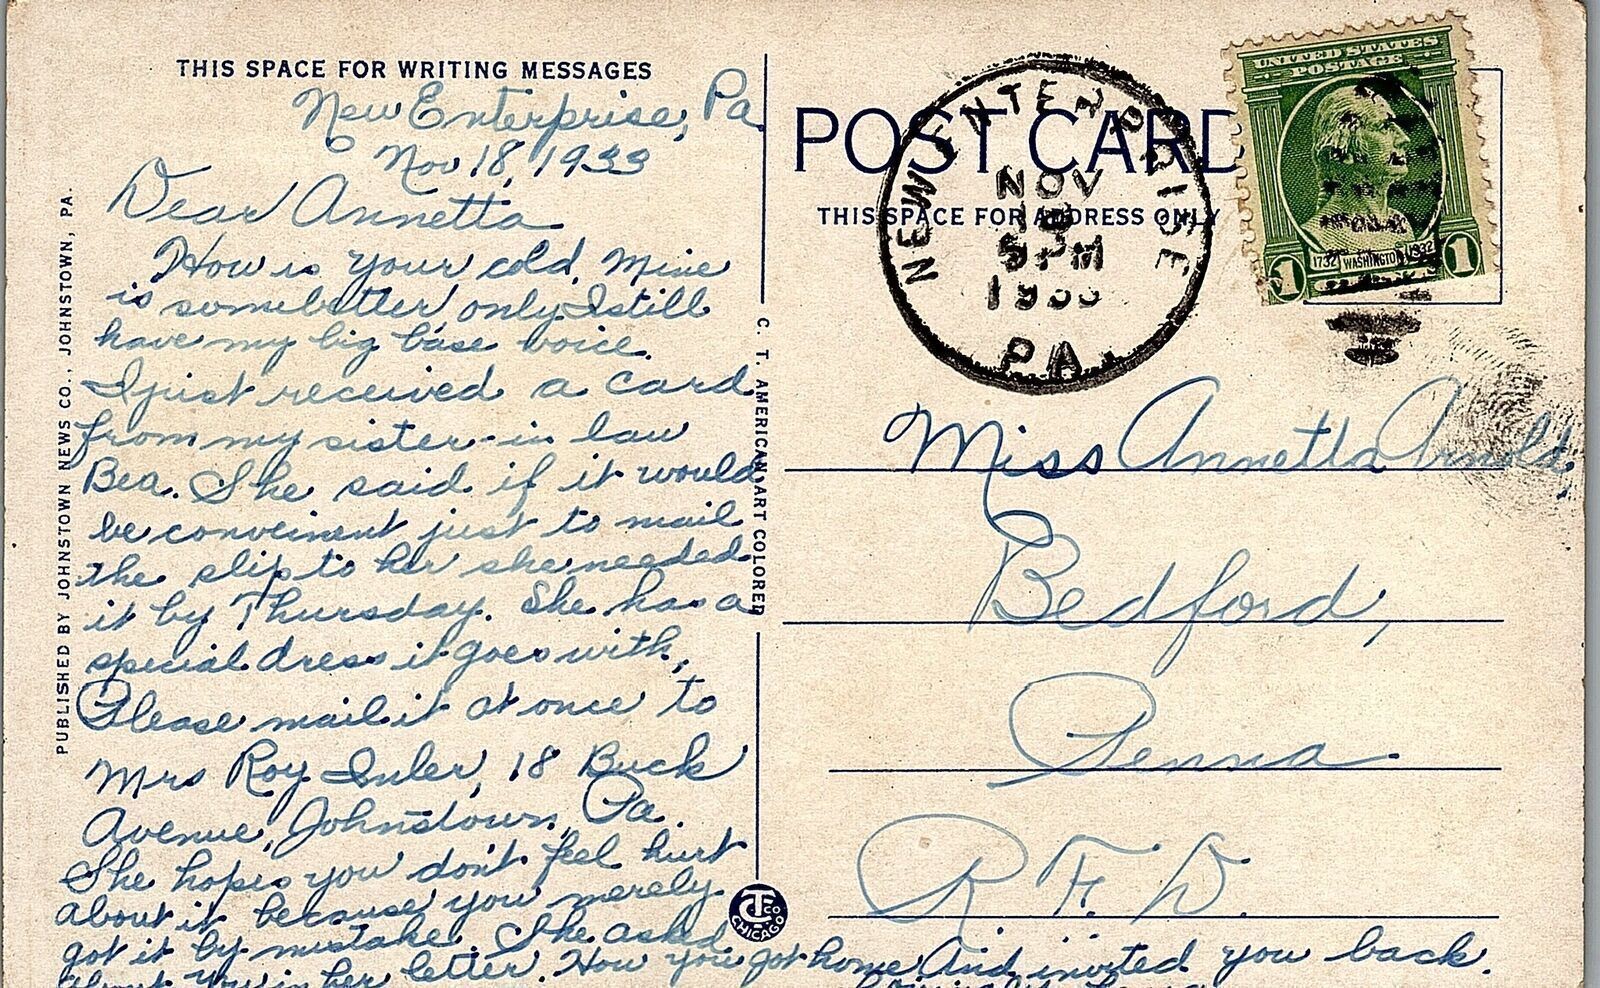 THIS SPACE FOR WRITING MESSAGES
New Enterprise, Pa.
Nov 18, 1933
Dear Annetta
How is your cold. Mine
is somebetter only I still
have my big base voice.
I just received a card
from my sister-in law
Bea. She said if it would
be conveinent just to mail
the slip to her she needed
it by Thursday. She has a
special dress it goes with.
Please mail it at once to
Mrs Roy Imler, 18 Buck
Avenue, Johnstown, Pa.
She hopes you don't feel hurt
about it because you merely
got it by mistake. She asked
about you in her letter. How you got home And invited you back.
PUBLISHED BY JOHNSTOWN NEWS CO., JOHNSTOWN, PA.
C. T. AMERICAN ART COLORED
CT CO
CHICAGO
POST CARD
THIS SPACE FOR ADDRESS ONLY
NEW ENTERPRISE
NOV
18
5 PM
1933
PA.
UNITED STATES
POSTAGE
1732 WASHINGTON 1932
1 1
Miss Annetta Arnold,
Bedford,
Penna.
R. F. D.